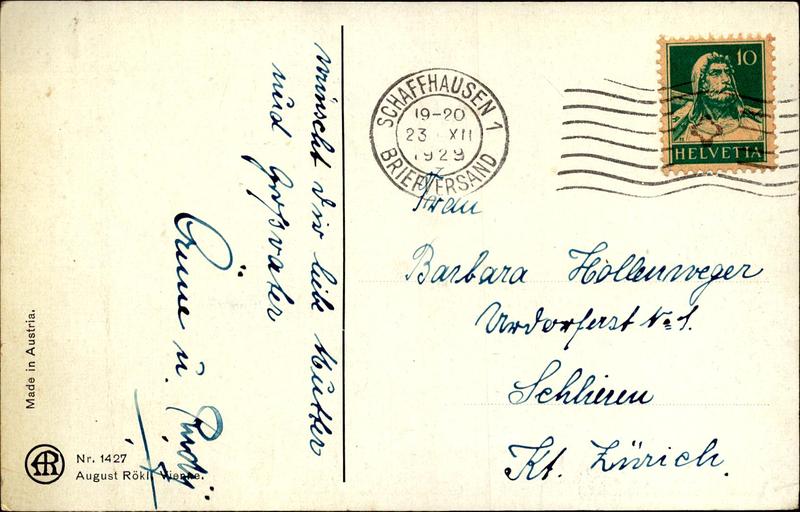 wünscht dir liebe Mutter
und Großvater
Änne u. Rudi
Made in Austria.
Nr. 1427
August Rökl, Vienne.
SCHAFFHAUSEN 1
19-20
23 XII
1929
BRIEFVERSAND
10
HELVETIA
Frau
Barbara Hollenweger
Urdorferst No 1.
Schlieren
Kt. Zürich.